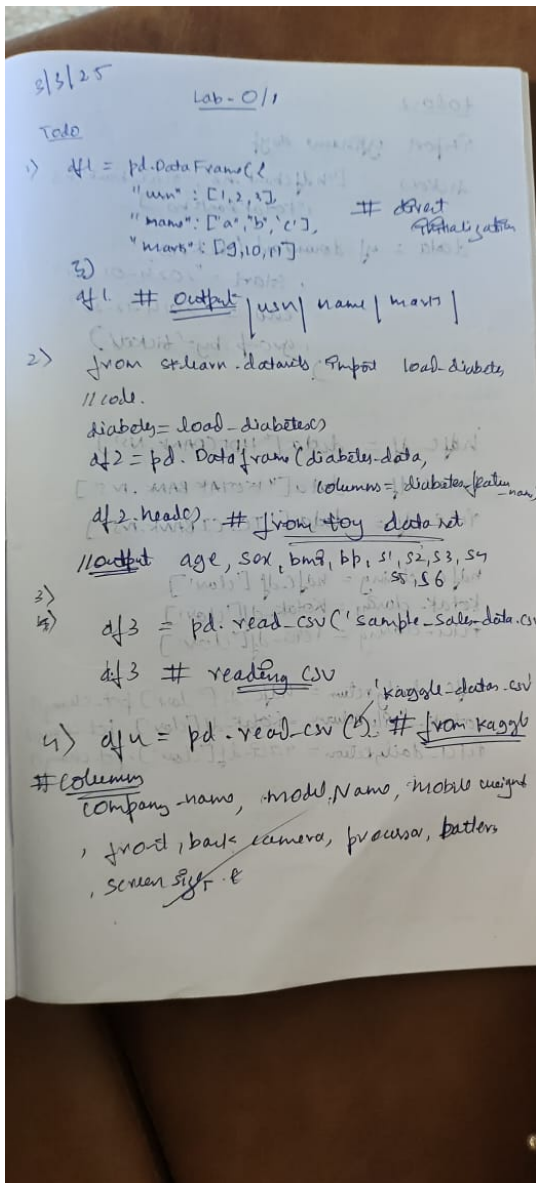 3/3/25
Lab-0/1
Todo
1) df1 = pd.DataFrame({
"usn" : [1,2,3],
"name": ["a","b",'c'],
"marks": [9,10,11]
# direct
initialization
})
df1. # output |usn| name | marks |
2) from sklearn.datasets import load_diabetes
//code.
diabetes = load_diabetes()
df2 = pd. Dataframe (diabetes.data,
columns = diabetes.feature_names
df2.head() # from toy dataset
//output age, sex, bmi, bp, s1, s2, s3, s4
s5, s6
3)
df3 = pd.read_csv('sample_sales_data.csv
df3 # reading csv
'kaggle-datas.csv'
4) df4 = pd.read_csv(') # from kaggle
# columns
company-name, model Name, mobile weight
, front, back camera, processor, battery
, screen size,